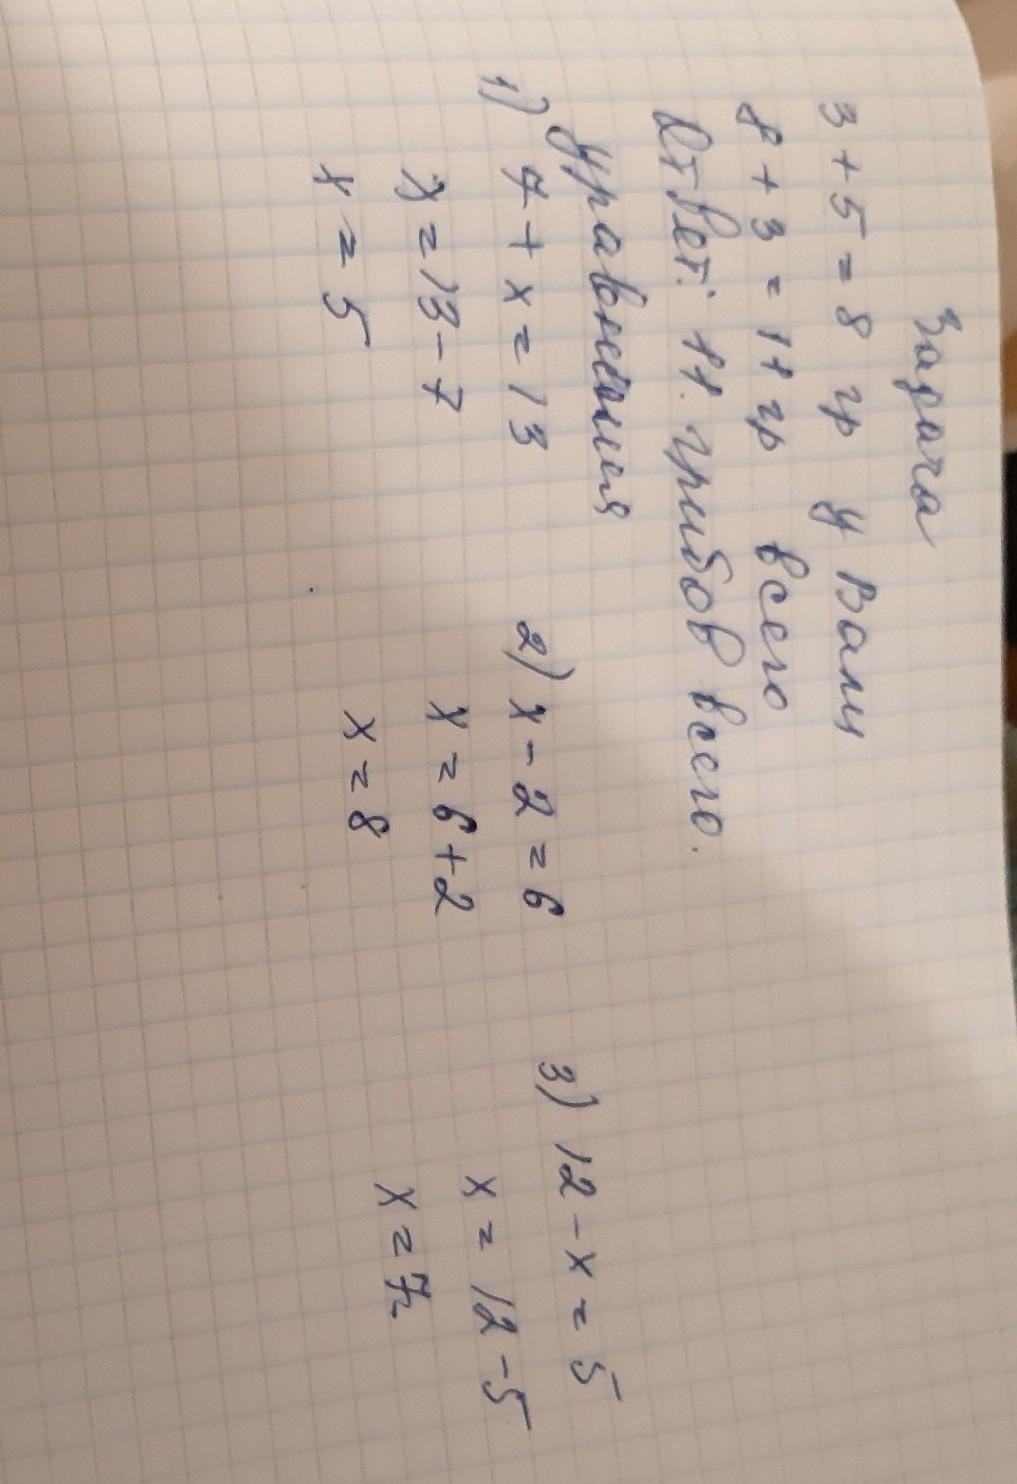 Задача
3 + 5 = 8 гр у Вали
8 + 3 = 11 гр всего
Ответ: 11 грибов всего.
Уравнения
1) 7 + x = 13
x = 13 - 7
x = 5
2) x - 2 = 6
x = 6 + 2
x = 8
3) 12 - x = 5
x = 12 - 5
x = 7